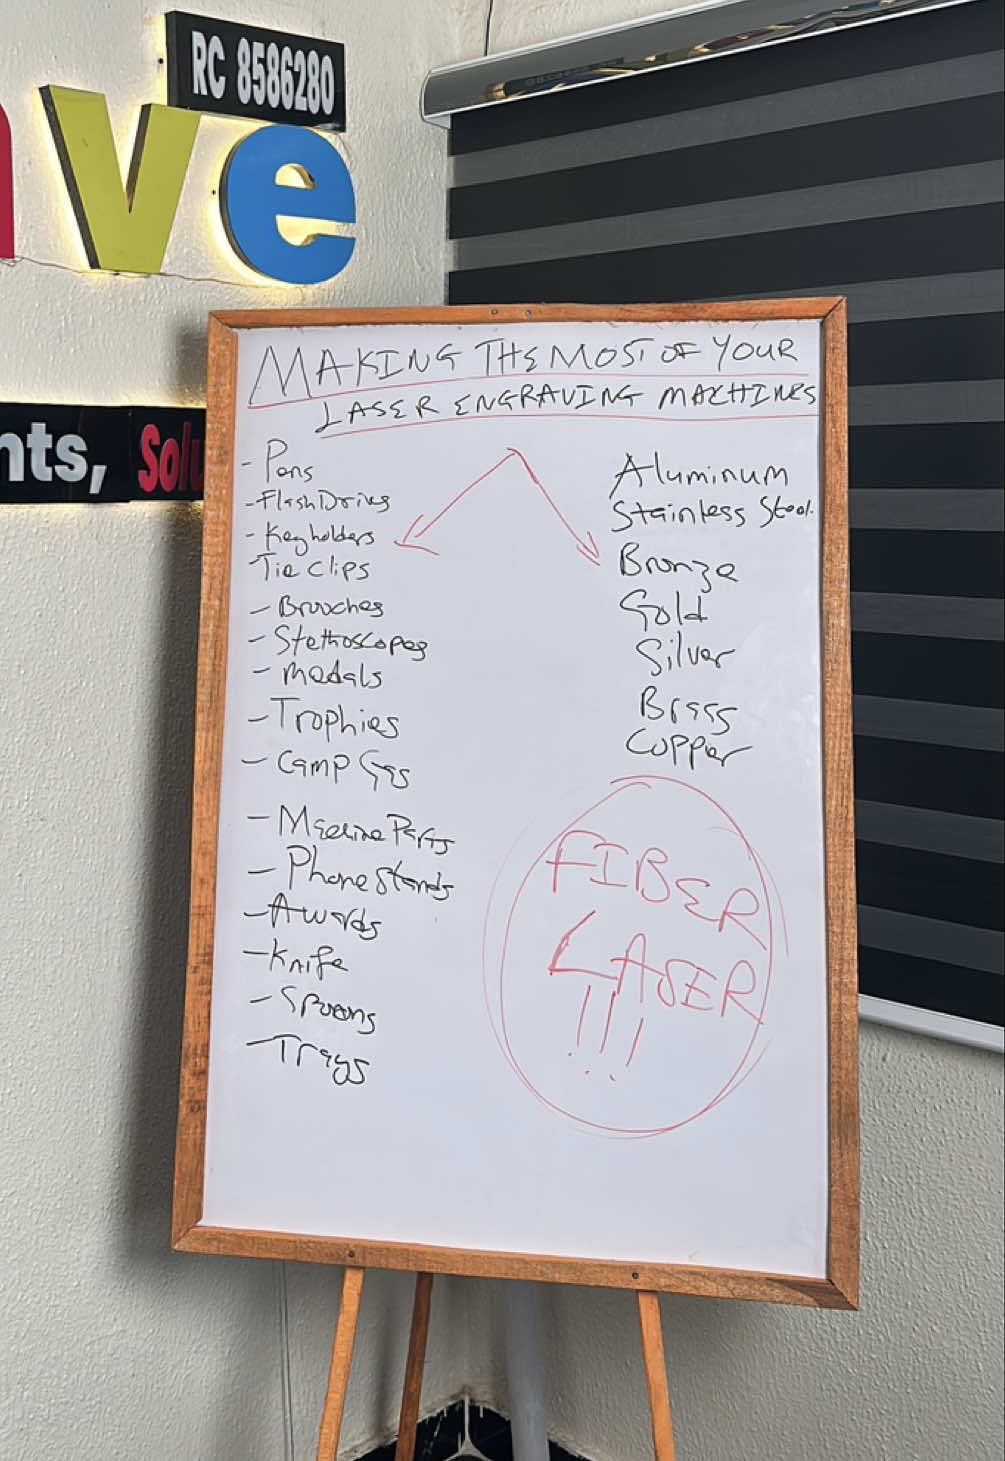 RC 8586280
ve
nts, Solu
MAKING THE MOST OF YOUR
LASER ENGRAVING MACHINES
- Pens
- Flash Drives
- Keyholders
Tie Clips
- Brooches
- Stethoscopes
- medals
- Trophies
- Camp Gas
- Machine Parts
- Phone Stands
- Awards
- Knife
- Spoons
- Trays
Aluminum
Stainless Steel.
Bronze
Gold
Silver
Brass
Copper
FIBER
LASER
!!!